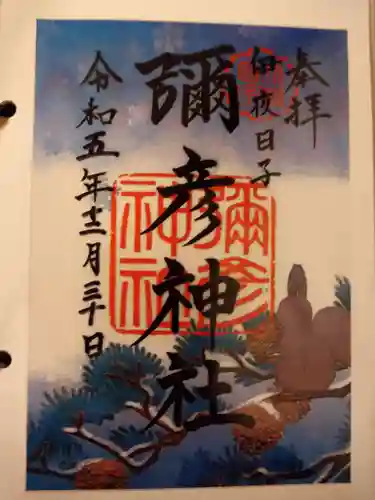 奉拝
伊夜日子
彌彦神社
令和五年十二月三十日
彌彦神社